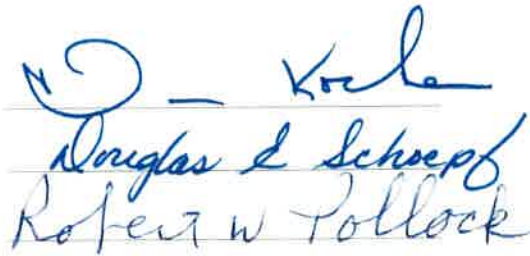 Douglas E Schoepf
Robert W Pollock